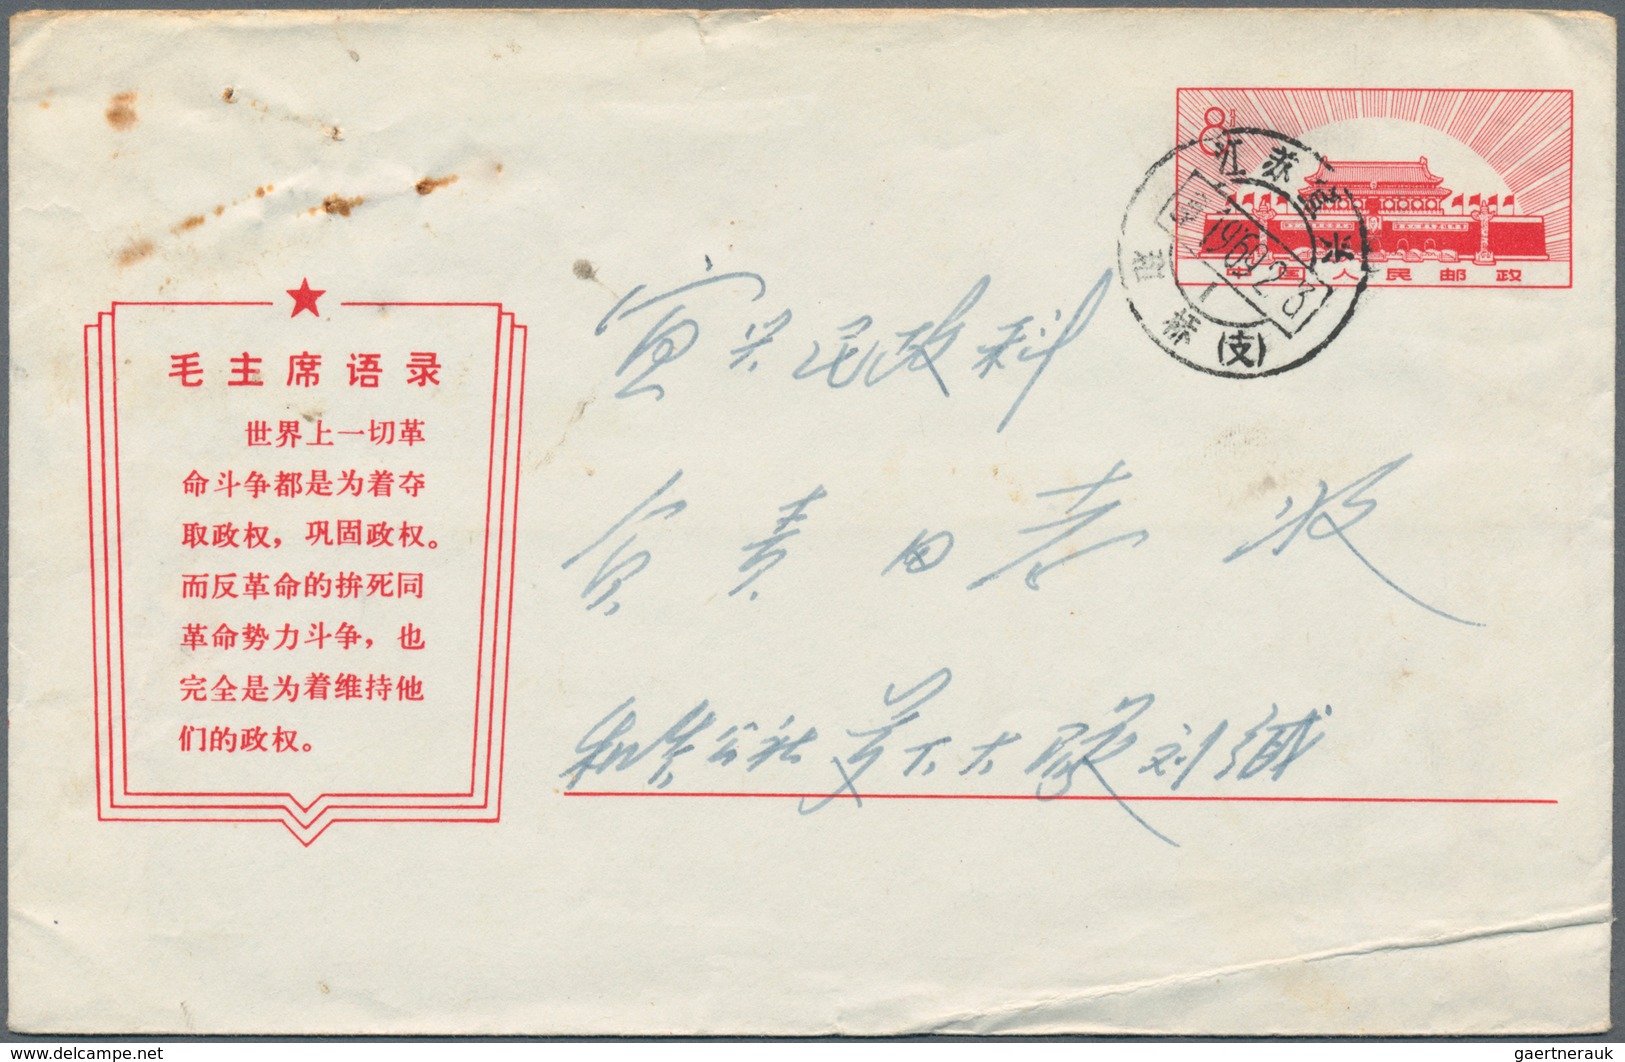 8分
中国人民邮政
江苏宜兴
1969.2.3
(支)
毛主席语录
世界上一切革
命斗争都是为着夺
取政权，巩固政权。
而反革命的拚死同
革命势力斗争，也
完全是为着维持他
们的政权。
宜兴民政科
负责同志收
公社 大队 刘缄
www.delcampe.net
gaertnerauk